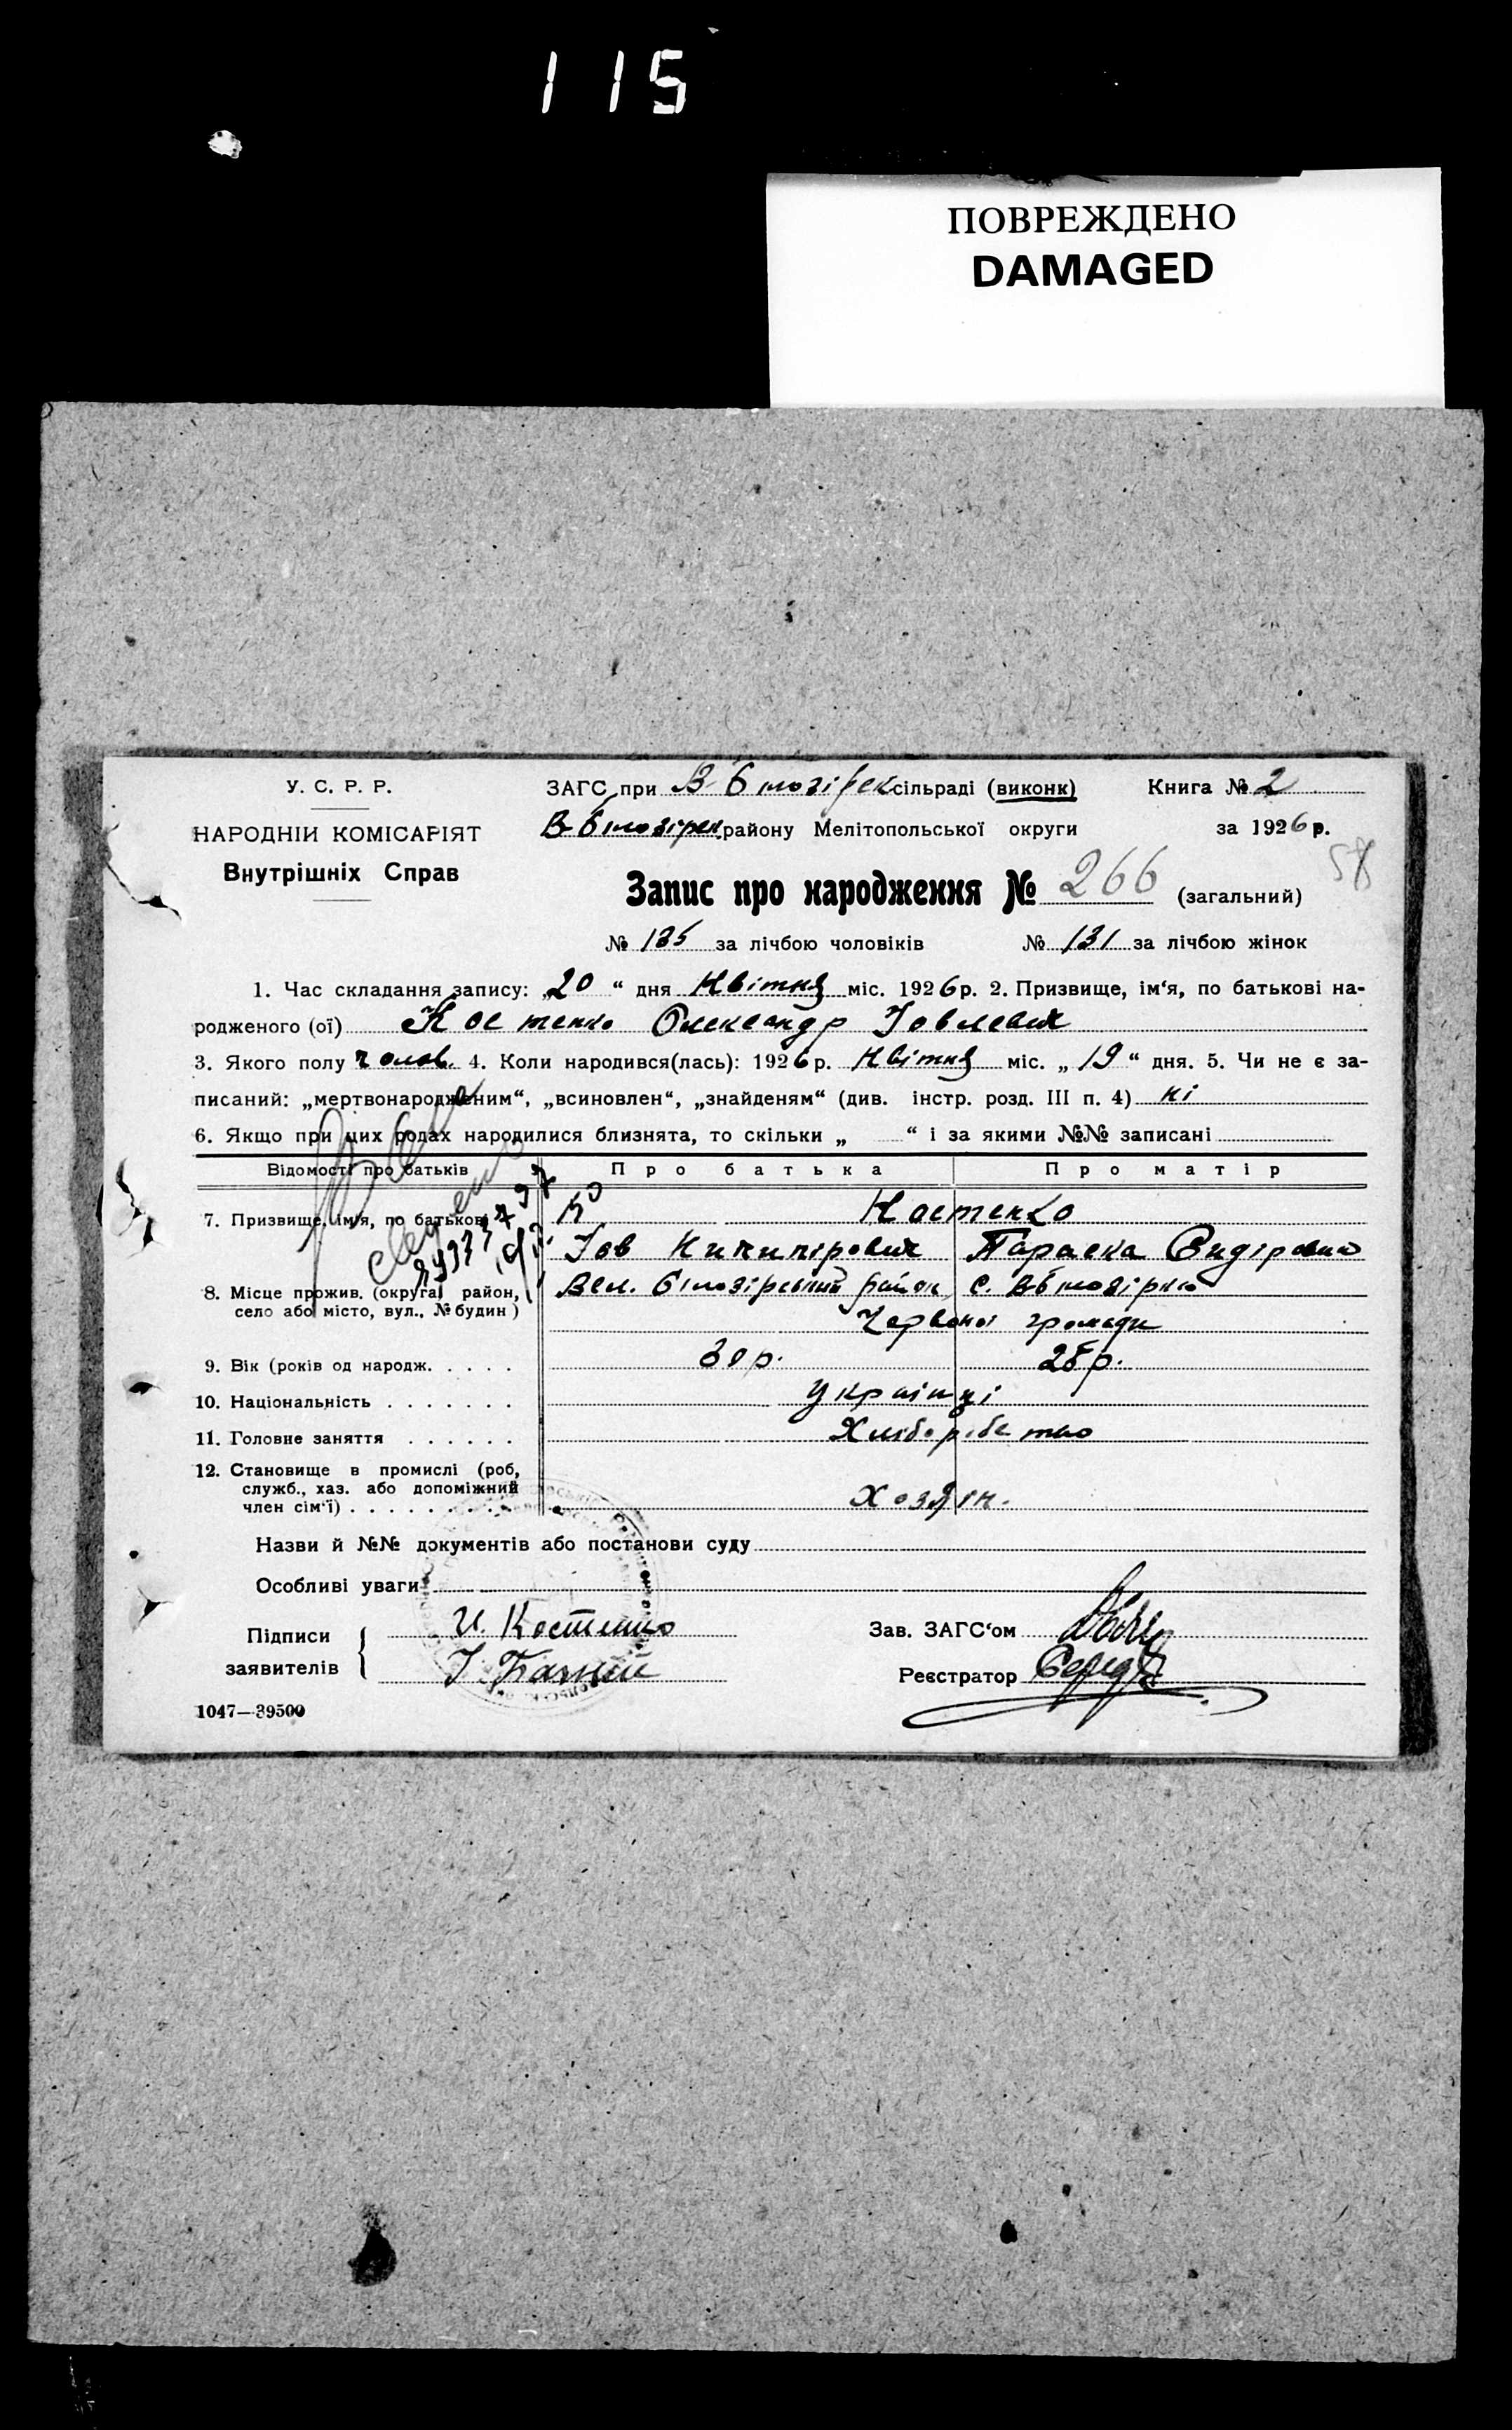 115
ПОВРЕЖДЕНО
DAMAGED
У. С. Р. Р.
НАРОДНІЙ КОМІСАРІЯТ
Внутрішніх Справ
ЗАГС при В-Білозірск сільраді (виконк) Книга № 2
В-Білозірск району Мелітопольської округи за 1926 р.
58
Запис про народження № 266 (загальний)
№ 135 за лічбою чоловіків № 131 за лічбою жінок
1. Час складання запису: „20“ дня Квітня міс. 1926 р. 2. Призвище, ім'я, по батькові на-
родженого (ої) Костенко Олександр Іовлевич
3. Якого полу чолов. 4. Коли народився(лась): 1926 р. Квітня міс. „19“ дня. 5. Чи не є за-
писаний: „мертвонародженим“, „всиновлен“, „знайденям“ (див. інстр. розд. III п. 4) ні
6. Якщо при цих родах народилися близнята, то скільки „ “ і за якими №№ записані
Відомості про батьків Про батька Про матір
7. Призвище, ім'я, по батькові Костенко
Іов Кичипірович Параска Сидіровна
8. Місце прожив. (округа, район, село або місто, вул., № будин) Вел. Білозірський район, с. ВБілозірка
Червоної громади
9. Вік (років од народж. . . . . 30 р. 25 р.
10. Національність . . . . . . . українці
11. Головне заняття . . . . . . Хліборобство
12. Становище в промислі (роб,
служб., хаз. або допоміжний
член сім'ї) . . . . . . . . . Хозяін.
Назви й №№ документів або постанови суду
Особливі уваги
Підписи заявителів { И. Костенко
Зав. ЗАГС'ом
Реєстратор Середа
1047—39500